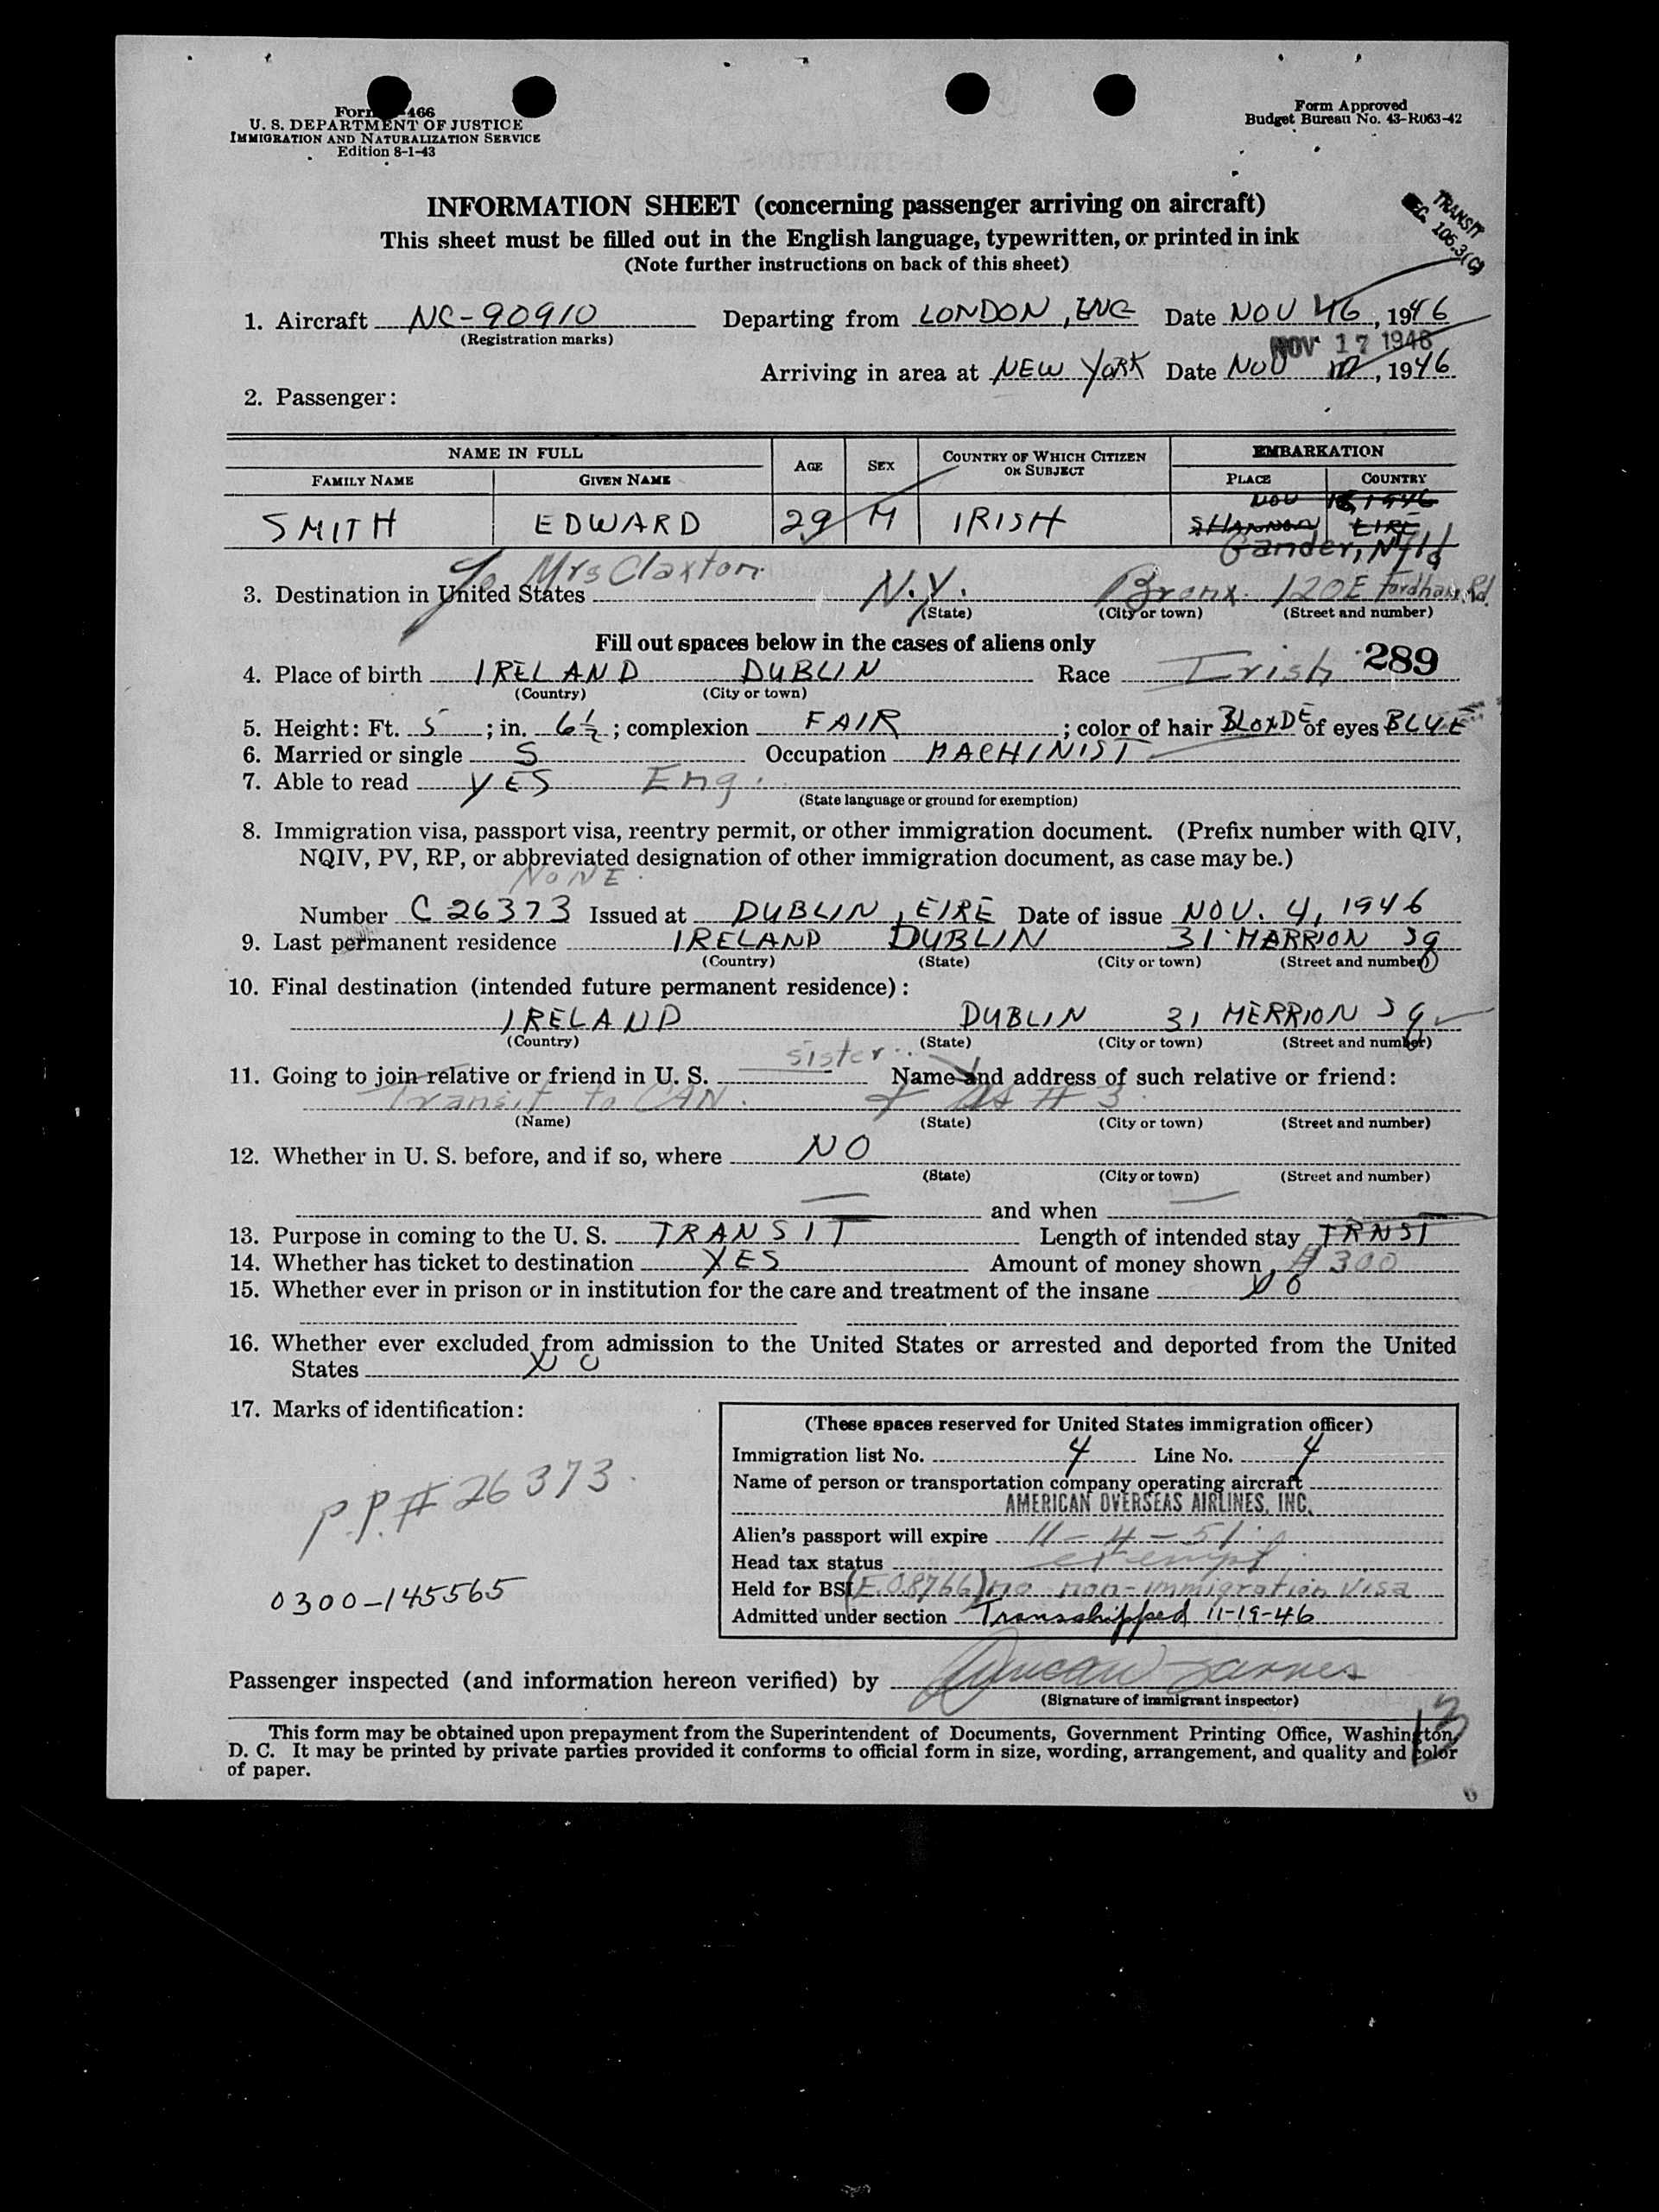 Form 466
U. S. DEPARTMENT OF JUSTICE
IMMIGRATION AND NATURALIZATION SERVICE
Edition 8-1-43
Form Approved
Budget Bureau No. 43-R063-42
INFORMATION SHEET (concerning passenger arriving on aircraft)
This sheet must be filled out in the English language, typewritten, or printed in ink
(Note further instructions on back of this sheet)
TRANSIT
106.3(C)
1. Aircraft NC-90910 Departing from LONDON, ENG Date NOV 16, 1946
(Registration marks)
NOV 17 1946
Arriving in area at NEW YORK Date NOV , 1946
2. Passenger:
NAME IN FULL AGE SEX COUNTRY OF WHICH CITIZEN OR SUBJECT EMBARKATION
FAMILY NAME GIVEN NAME PLACE COUNTRY
NOV 1946
SMITH EDWARD 29 M IRISH SHANNON EIRE
Gander, Nfld
Mrs Claxton
3. Destination in United States N.Y. Bronx 120 E Fordham Rd.
(State) (City or town) (Street and number)
Fill out spaces below in the cases of aliens only
289
4. Place of birth IRELAND DUBLIN Race Irish
(Country) (City or town)
5. Height: Ft. 5 ; in. 6½ ; complexion FAIR ; color of hair BLONDE of eyes BLUE
6. Married or single S Occupation MACHINIST
7. Able to read YES Eng.
(State language or ground for exemption)
8. Immigration visa, passport visa, reentry permit, or other immigration document. (Prefix number with QIV,
NQIV, PV, RP, or abbreviated designation of other immigration document, as case may be.)
NONE
Number C 26373 Issued at DUBLIN, EIRE Date of issue NOV. 4, 1946
9. Last permanent residence IRELAND DUBLIN 31 MARRION Sq
(Country) (State) (City or town) (Street and number)
10. Final destination (intended future permanent residence):
IRELAND DUBLIN 31 MERRION Sq
(Country) (State) (City or town) (Street and number)
11. Going to join relative or friend in U. S. sister Name and address of such relative or friend:
Transit to CAN. As # 3
(Name) (State) (City or town) (Street and number)
12. Whether in U. S. before, and if so, where NO
(State) (City or town) (Street and number)
and when
13. Purpose in coming to the U. S. TRANSIT Length of intended stay TRNST
14. Whether has ticket to destination YES Amount of money shown $300
15. Whether ever in prison or in institution for the care and treatment of the insane NO
16. Whether ever excluded from admission to the United States or arrested and deported from the United
States NO
17. Marks of identification:
P.P.# 26373
0300-145565
(These spaces reserved for United States immigration officer)
Immigration list No. 4 Line No. 4
Name of person or transportation company operating aircraft
AMERICAN OVERSEAS AIRLINES, INC.
Alien's passport will expire 11-4-51
Head tax status exempt
Held for BSI (E.O.8766) no non-immigration Visa
Admitted under section Transshipped 11-19-46
Passenger inspected (and information hereon verified) by
(Signature of immigrant inspector)
This form may be obtained upon prepayment from the Superintendent of Documents, Government Printing Office, Washington,
D. C. It may be printed by private parties provided it conforms to official form in size, wording, arrangement, and quality and color
of paper.